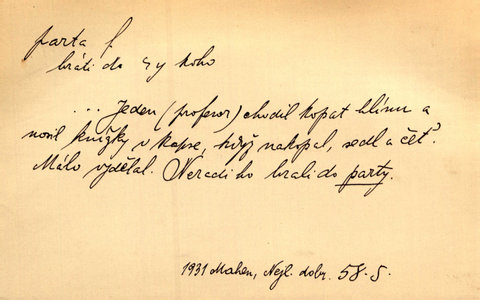 parta f
bráti do ~y koho
... Jeden (profesor) chodil kopat hlínu a
nosil knížky v kapse, když nakopal, sedl a čet.
Málo vydělal. Neradi ho brali do party.
1931 Mahen, Nejl. dobr. 58-5.